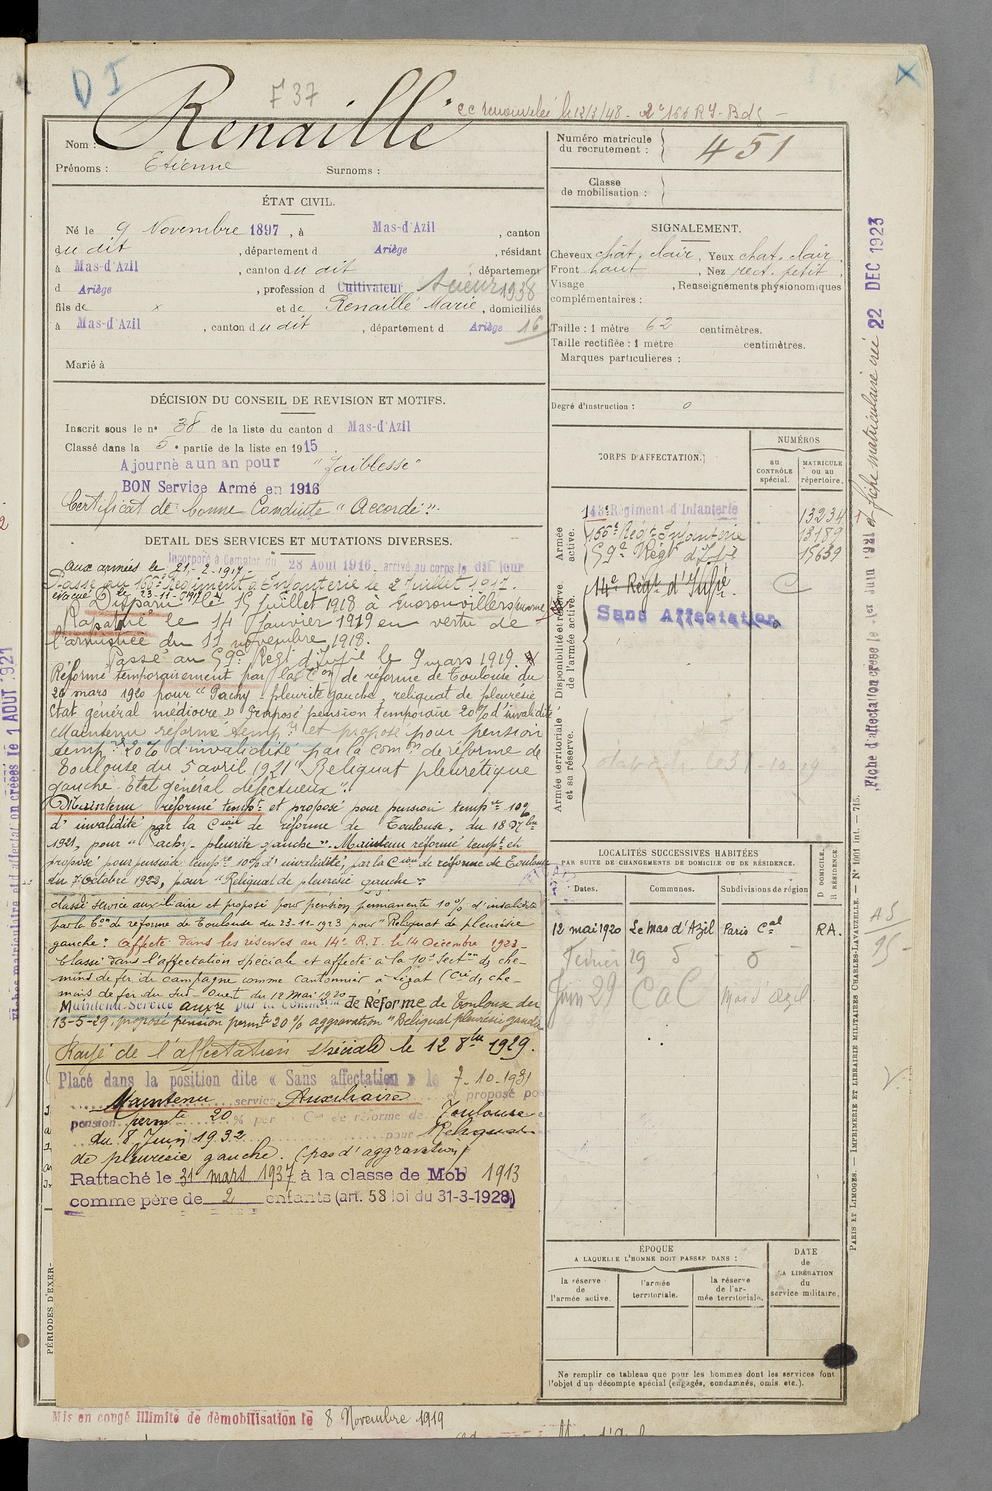 D I
F 37
CC renouvelée le 12/3/48 - 2° 150 RI - Bd8 -
Nom : Renaillé
Prénoms : Etienne Surnoms :
Numéro matricule du recrutement : 451
Classe de mobilisation :
ÉTAT CIVIL.
Né le 9 Novembre 1897, à Mas-d'Azil, canton
du dit, département d Ariège, résidant
à Mas-d'Azil, canton du dit, département
d Ariège, profession d Cultivateur 1938
fils de x et de Renaillé Marie, domiciliés
à Mas-d'Azil, canton du dit, département d Ariège 16
Marié à
SIGNALEMENT.
Cheveux chât. clair, Yeux chat. clair.
Front haut, Nez rect. petit.
Visage , Renseignements physionomiques
complémentaires :
Taille : 1 mètre 62 centimètres.
Taille rectifiée : 1 mètre centimètres.
Marques particulières :
Degré d'instruction : 0
DÉCISION DU CONSEIL DE REVISION ET MOTIFS.
Inscrit sous le n° 38 de la liste du canton d Mas-d'Azil
Classé dans la 5e partie de la liste en 1915
Ajourné a un an pour "Faiblesse"
BON Service Armé en 1916
Certificat de bonne Conduite "Accordé".
DETAIL DES SERVICES ET MUTATIONS DIVERSES.
Incorporé à Compter du 28 Aout 1916, arrivé au corps le dit jour
aux armées le 21-2-1917.
Passé au 155e Régiment d'Infanterie le 2 Juillet 1917.
évacué le 23-11-1917
Disparu le 15 Juillet 1918 à
Rapatrié le 14 Janvier 1919 en vertu de
l'armistice du 11 novembre 1918.
Passé au 59e Régt d'Infie le 9 mars 1919.
Réformé temporairement par la Con de réforme de Toulouse du
26 mars 1920 pour "Pachy-pleurite gauche, reliquat de pleurésie
Etat général médiocre" proposé pension temporaire 20% d'invalidité
Maintenu réformé temp. et proposé pour pension
temp. 20% d'invalidité par la Comon de réforme de
Toulouse du 5 avril 1921 "Reliquat pleurétique
gauche. Etat général défectueux".
Maintenu réformé tempt et proposé pour pension tempre 10%
d'invalidité par la Coion de réforme de Toulouse, du 18 7bre
1921, pour "Pachy-pleurite gauche". Maintenu réformé tempt et
proposé pour pension tempre 10% d'invalidité, par la Coion de réforme de Toulouse
du 7 Octobre 1922, pour "Reliquat de pleurésie gauche".
Classé service auxiliaire et proposé pour pension permanente 10% d'invalidité
par la Con de réforme de Toulouse du 23-11-1923 pour "Reliquat de pleurésie
gauche". Affecté dans les réserves au 14e R.I. le 14 Décembre 1923.
Classé dans l'affectation spéciale et affecté à la 10e Sectn de che-
mins de fer de campagne comme cantonnier à Lézat (Cie des che-
mins de fer du Sud-Ouest du 12 Mai 1920
Maintenu Service auxre par la Commion de Reforme de Toulouse du
13-5-29, proposé pension permte 20% aggravation "Reliquat pleurésie gauche
Rayé de l'affectation Spéciale le 12 8bre 1929.
Placé dans la position dite « Sans affectation » le 7-10-1931
Maintenu service Auxiliaire et proposé po
pension permte 20 % par Con de réforme de Toulouse
du 8 Juin 1932 pour Reliquat
de pleurésie gauche. (pas d'aggravation)
Rattaché le 31 mars 1937 à la classe de Mob 1913
comme père de 2 enfants (art. 58 loi du 31-3-1928)
Mis en congé illimité de démobilisation le 8 Novembre 1919
PÉRIODES D'EXER-
CORPS D'AFFECTATION.
NUMÉROS
au CONTRÔLE spécial.
MATRICULE ou au répertoire.
Armée active.
143e Régiment d'Infanterie 13234
155e Régt Infanterie 13189
59e Régt d'Infie 15639
Disponibilité et réserve de l'armée active.
14e Régt d'Infie. C
Sans Affectation
Armée territoriale et sa réserve.
LOCALITÉS SUCCESSIVES HABITÉES
PAR SUITE DE CHANGEMENTS DE DOMICILE OU DE RÉSIDENCE.
Dates. Communes. Subdivisions de région
D DOMICILE, R RÉSIDENCE
12 mai 1920 Le Mas d'Azil Paris Cal RA.
Juin 29 CaC Mas d'Azil
ÉPOQUE
A LAQUELLE L'HOMME DOIT PASSER DANS :
la réserve de l'armée active.
l'armée territoriale.
la réserve de l'armée territoriale.
DATE de LA LIBÉRATION du service militaire.
Ne remplir ce tableau que pour les hommes dont les services font
l'objet d'un décompte spécial (engagés, condamnés, omis, etc.).
Fiche d'affectation créée le 1er Juin 1921 et fiche matriculaire créée 22 DEC 1923
PARIS ET LIMOGES. — IMPRIMERIE ET LIBRAIRIE MILITAIRES CHARLES-LAVAUZELLE. — N° 1001 int. — 715.
Fiches matriculaire et d'affectation créées le 1 AOUT 1921